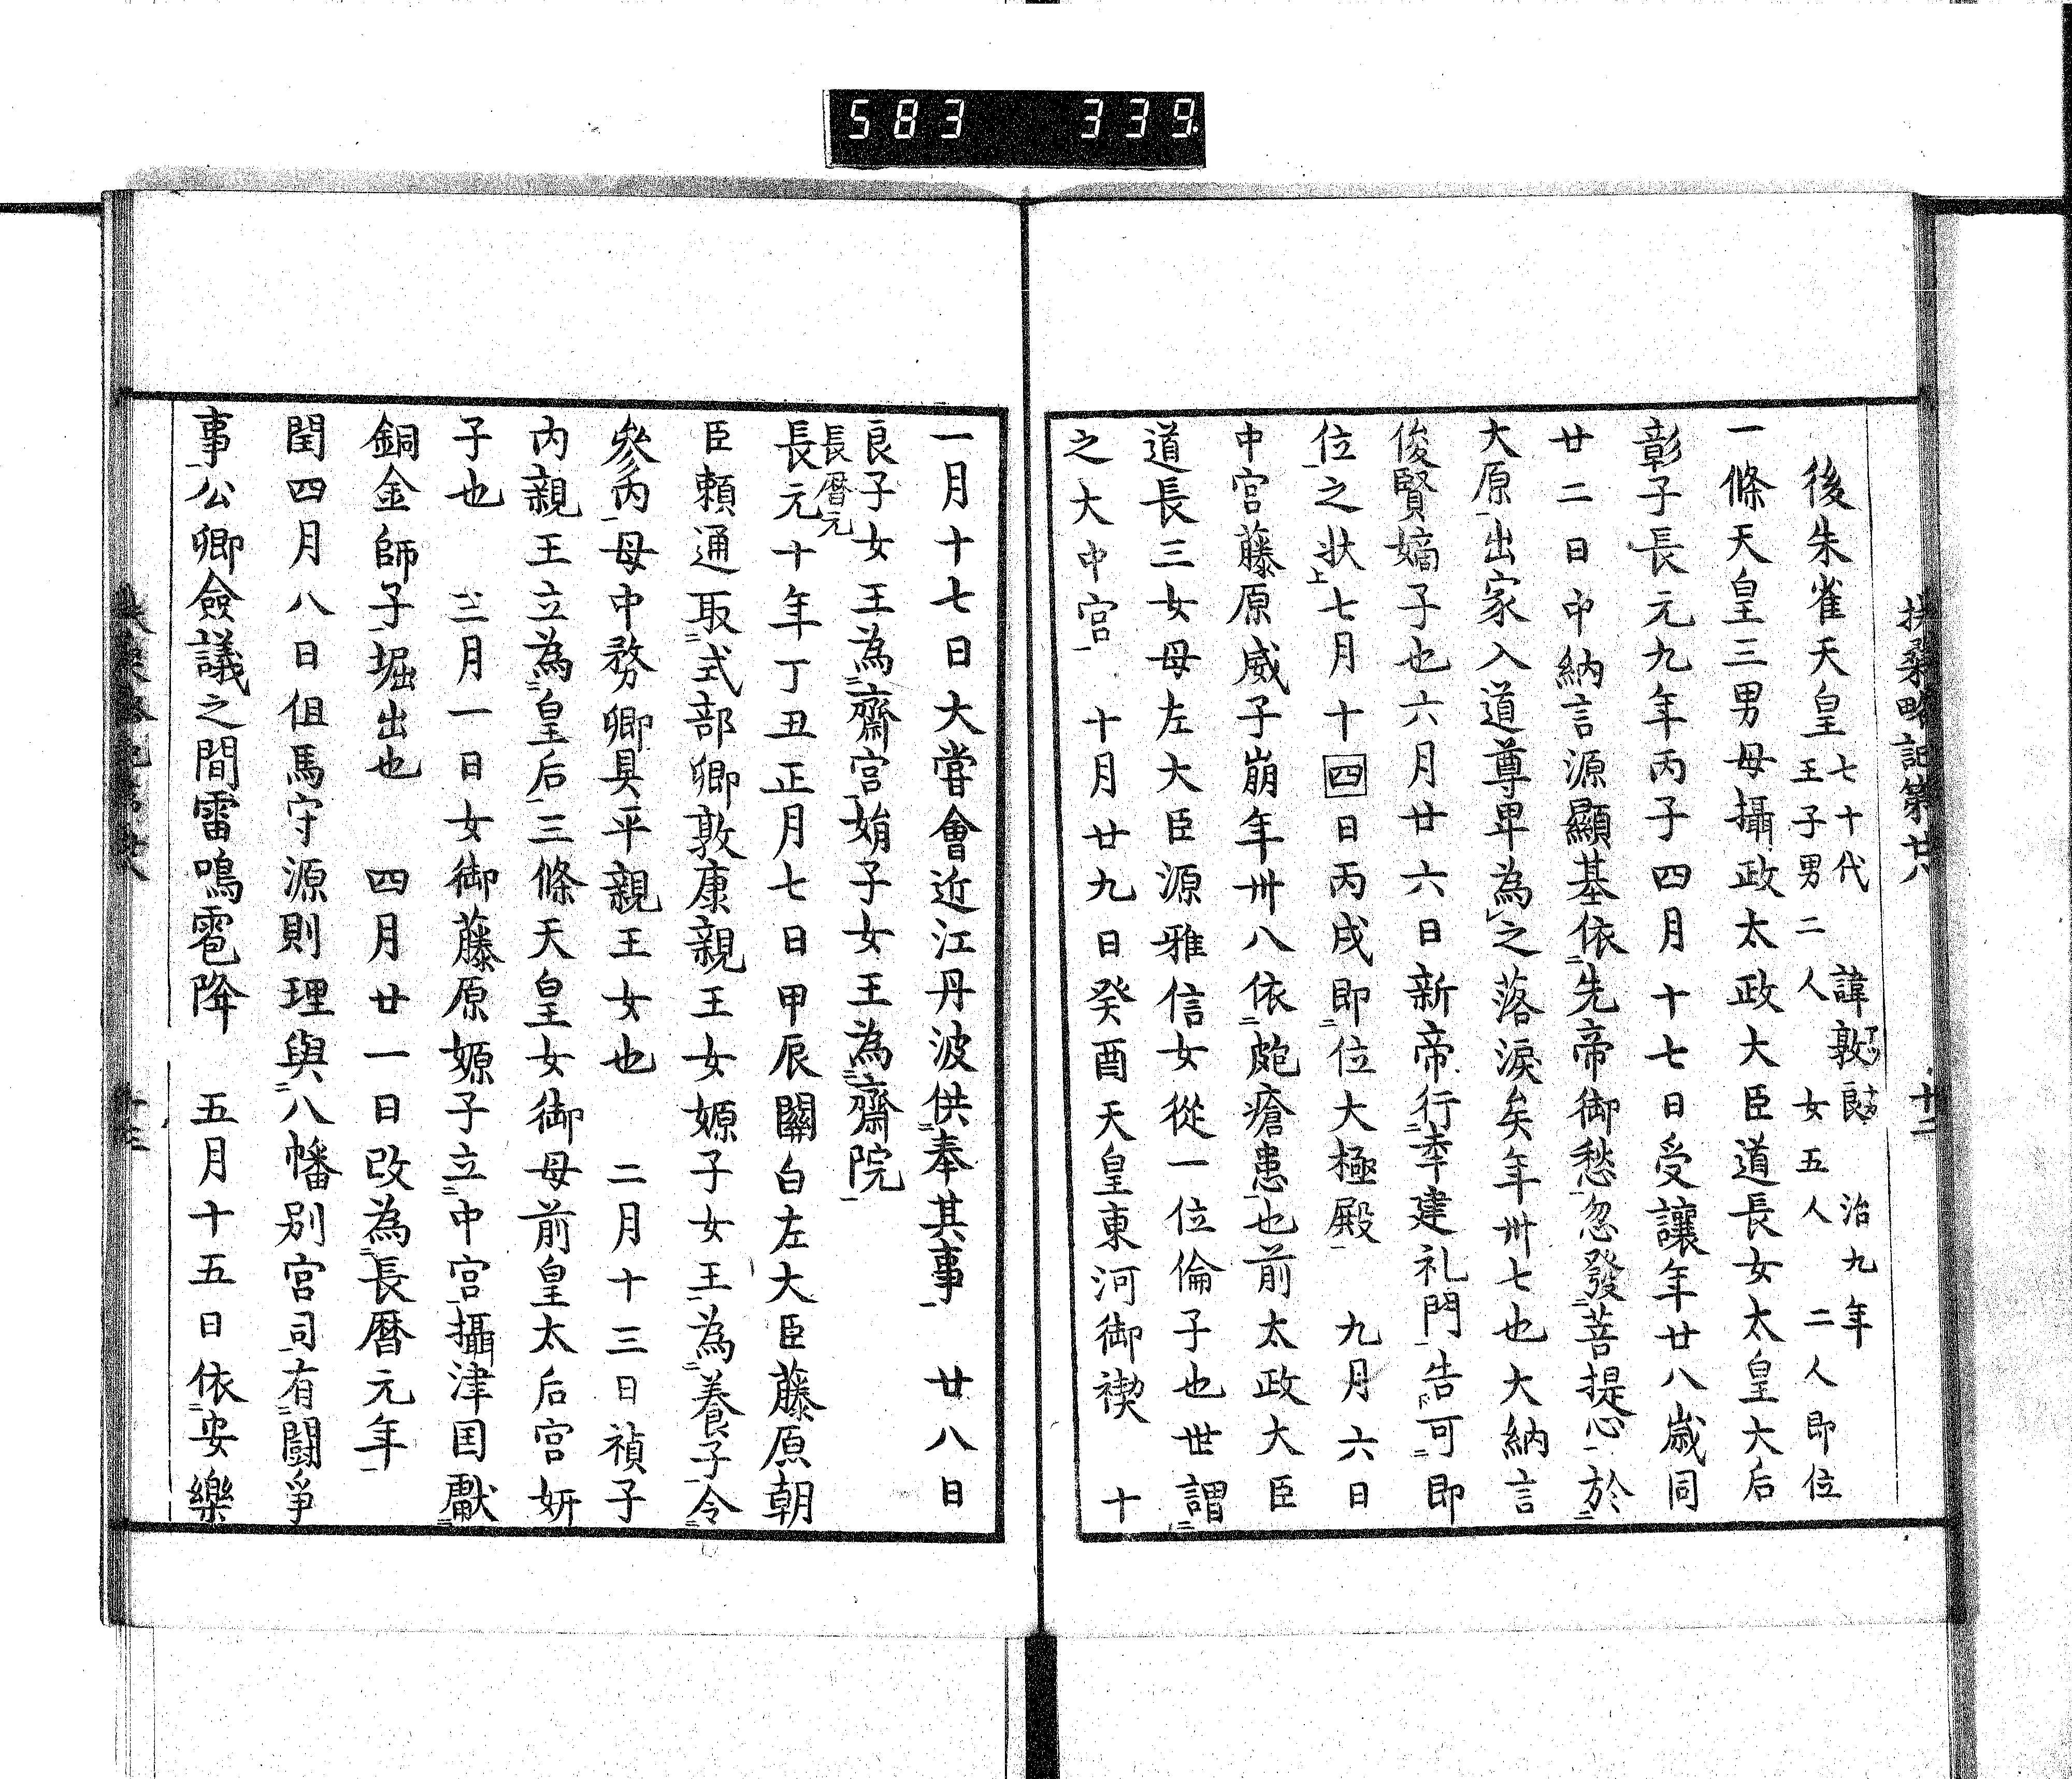 583 339
扶桑略記第廿八 廿二
後朱雀天皇 七十代 諱敦良 治九年
王子男二人 女五人 二人即位
一條天皇三男母攝政太政大臣道長女太皇大后
彰子長元九年丙子四月十七日受讓年廿八歳同
廿二日中納言源顯基依先帝御愁忽發菩提心於
大原出家入道尊卑為之落淚矣年卅七也大納言
俊賢嫡子也六月廿六日新帝行幸建礼門告可即
位之狀七月十四日丙戌即位大極殿 九月六日
中宮藤原威子崩年卅八依皰瘡患也前太政大臣
道長三女母左大臣源雅信女從一位倫子也世謂
之大中宮 十月廿九日癸酉天皇東河御禊 十
一月十七日大嘗會近江丹波供奉其事 廿八日
良子女王為齋宮娟子女王為齋院
長曆元
長元十年丁丑正月七日甲辰關白左大臣藤原朝
臣賴通取式部卿敦康親王女嫄子女王為養子令
參內母中務卿具平親王女也 二月十三日禎子
內親王立為皇后三條天皇女御母前皇太后宮妍
子也 三月一日女御藤原嫄子立中宮攝津国獻
銅金師子堀出也 四月廿一日改為長曆元年
閏四月八日但馬守源則理與八幡別宮司有鬪爭
事公卿僉議之間雷鳴雹降 五月十五日依安樂